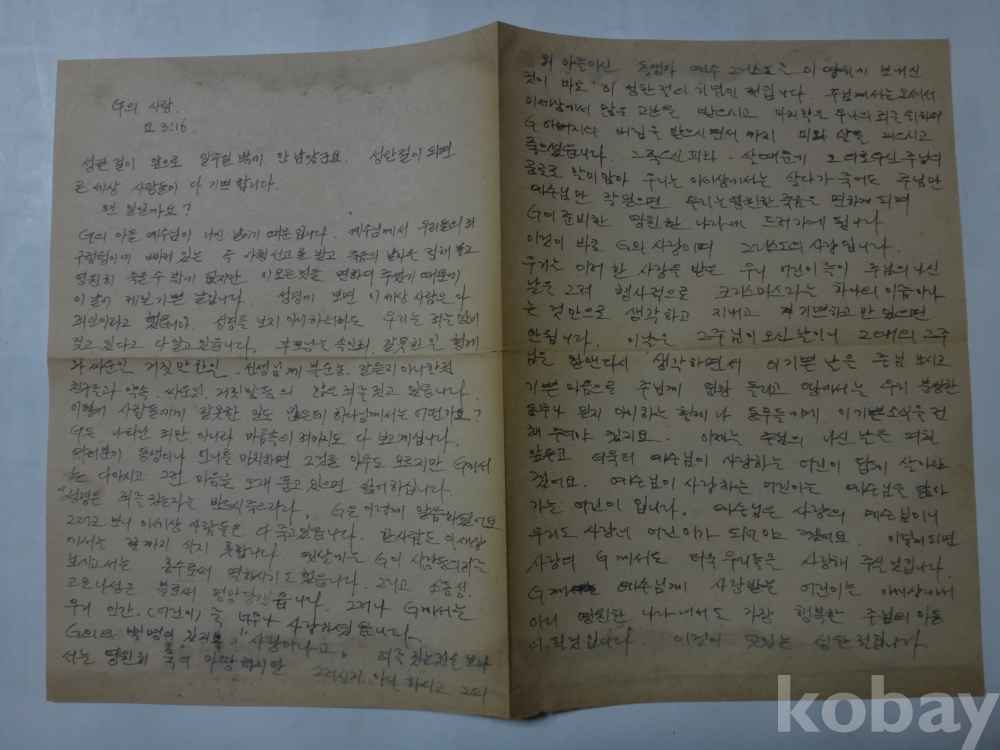 G의 사랑.
요 3:16.
성탄절이 앞으로 일주일 밖에 안 남았군요. 성탄절이 되면
온 세상 사람들이 다 기뻐합니다.
왠 일일까요?
G의 아들 예수님이 나신 날이기 때문입니다. 예수님께서 우리들의 죄
구렁텅이에 빠져 있는 즉 사형선고를 받고 죽음의 날자은 정해 놓고
영원히 죽을수 밖에 없지만 이 모든것을 면하여 주셨기 때문에
이 날이 제일 기쁜 날입니다. 성경에 보면 이 세상 사람은 다
죄인이라고 했어요. 성경을 보지 아니하더라도 우리는 죄는 많이
짓고 있다고 다 알고 있습니다. 부모님을 속인죄, 잘못한 일 형제
와 싸운일 거짓말한일, 선생님께 불순종, 말듣지 아니한죄
친구들과 약속, 싸운죄, 거짓말 등의 많은 죄를 짓고 있읍니다.
이렇게 사람들에게 잘못한 일도 많은데 하나님께서는 어떤가요?
G은 나타난 죄만 아니라 마음속의 죄까지도 다 보고계십니다.
여러분이 동생이나 언니를 미워하면 그것을 아무도 모르지만 G께서
는 다아시고 그런 마음을 오래 품고 있으면 싫어하십니다.
"성경은 죄를 짓는자는 반드시 죽으리라. G은 이렇게 말씀하셨어요
그러고 보니 이세상 사람들은 다 죽고 있읍니다. 한사람도 이세상
에서는 끝까지 살지 못합니다. 옛날에는 G이 사람들의 죄를
보시고서는 홍수로써 멸하시기도 했읍니다. 그리고 소돔성.
고모라성은 불로써 멸망당했읍니다. 그러나 G께서는
우리 인간. (어린이)를 너무나 사랑하셨읍니다.
"사랑이라고. 죄를 짓는것을 보라
서는 영원히 죽어 마땅하지만 그러시지 아니 하시고 그의
외 아들이신 독생자 예수 그리스도를 이 땅위에 보내신
것이 바로 이 성탄절의 기념인 것입니다. 주님께서는 오셔서
이세상에서 많은 고난을 받으시고 마지막은 우리의 죄를 위하여
G 아버지의 버림을 받으시면서 까지 피와 살을 찌으시고
죽으셨읍니다. 그 죽으신 피와. 살때문에
공로로 말미암아 우리는 이세상에서는 살다가 죽어도 주님만
예수님만 믿으면 우리는 영원한 죽음은 면하게 되며
G이 준비한 영원한 나라에 드러가게 됩니다
이것이 바로 G의 사랑이며 그리스도의 사랑입니다.
우리는 이러한 사랑을 받은 우리 어린이들이 주님의 나신
날은 그저 행사적으로 크리스마스라는 하나의 이름이라
는 것만으로 생각하고 지내고 기뻐하고만 있으면
안됩니다. 이날은 그 주님이 오신 날이니 그대의 그 주
님을 한번다시 생각하면서 이 기쁜 날은 주님 모시고
기쁜 마음으로 주님께 영광 돌리고 땅에서는 우리 불쌍한
동무나 믿지 아니하는 형제나 동무들에게 이 기쁜소식을 전
해 주어야 겠지요. 이제는 주님의 나신 날은 며칠
앞두고 더욱더 예수님이 사랑하는 어린이 답게 살아야
겠어요. 예수님이 사랑하는 어린이는 예수님을 닮아
가는 어린이 입니다. 예수님은 사랑의 예수님이니
우리도 사랑의 어린이가 되어야 겠어요. 이렇게되면
사랑의 G께서도 더욱 우리들을 사랑해 주실것입니다.
G께서 예수님께 사랑받는 어린이는 이세상에서
아니 영원한 나라에서도 가장 행복한 주님의 아동
이 될것입니다 이것이 뜻있는 성탄절입니다
kobay